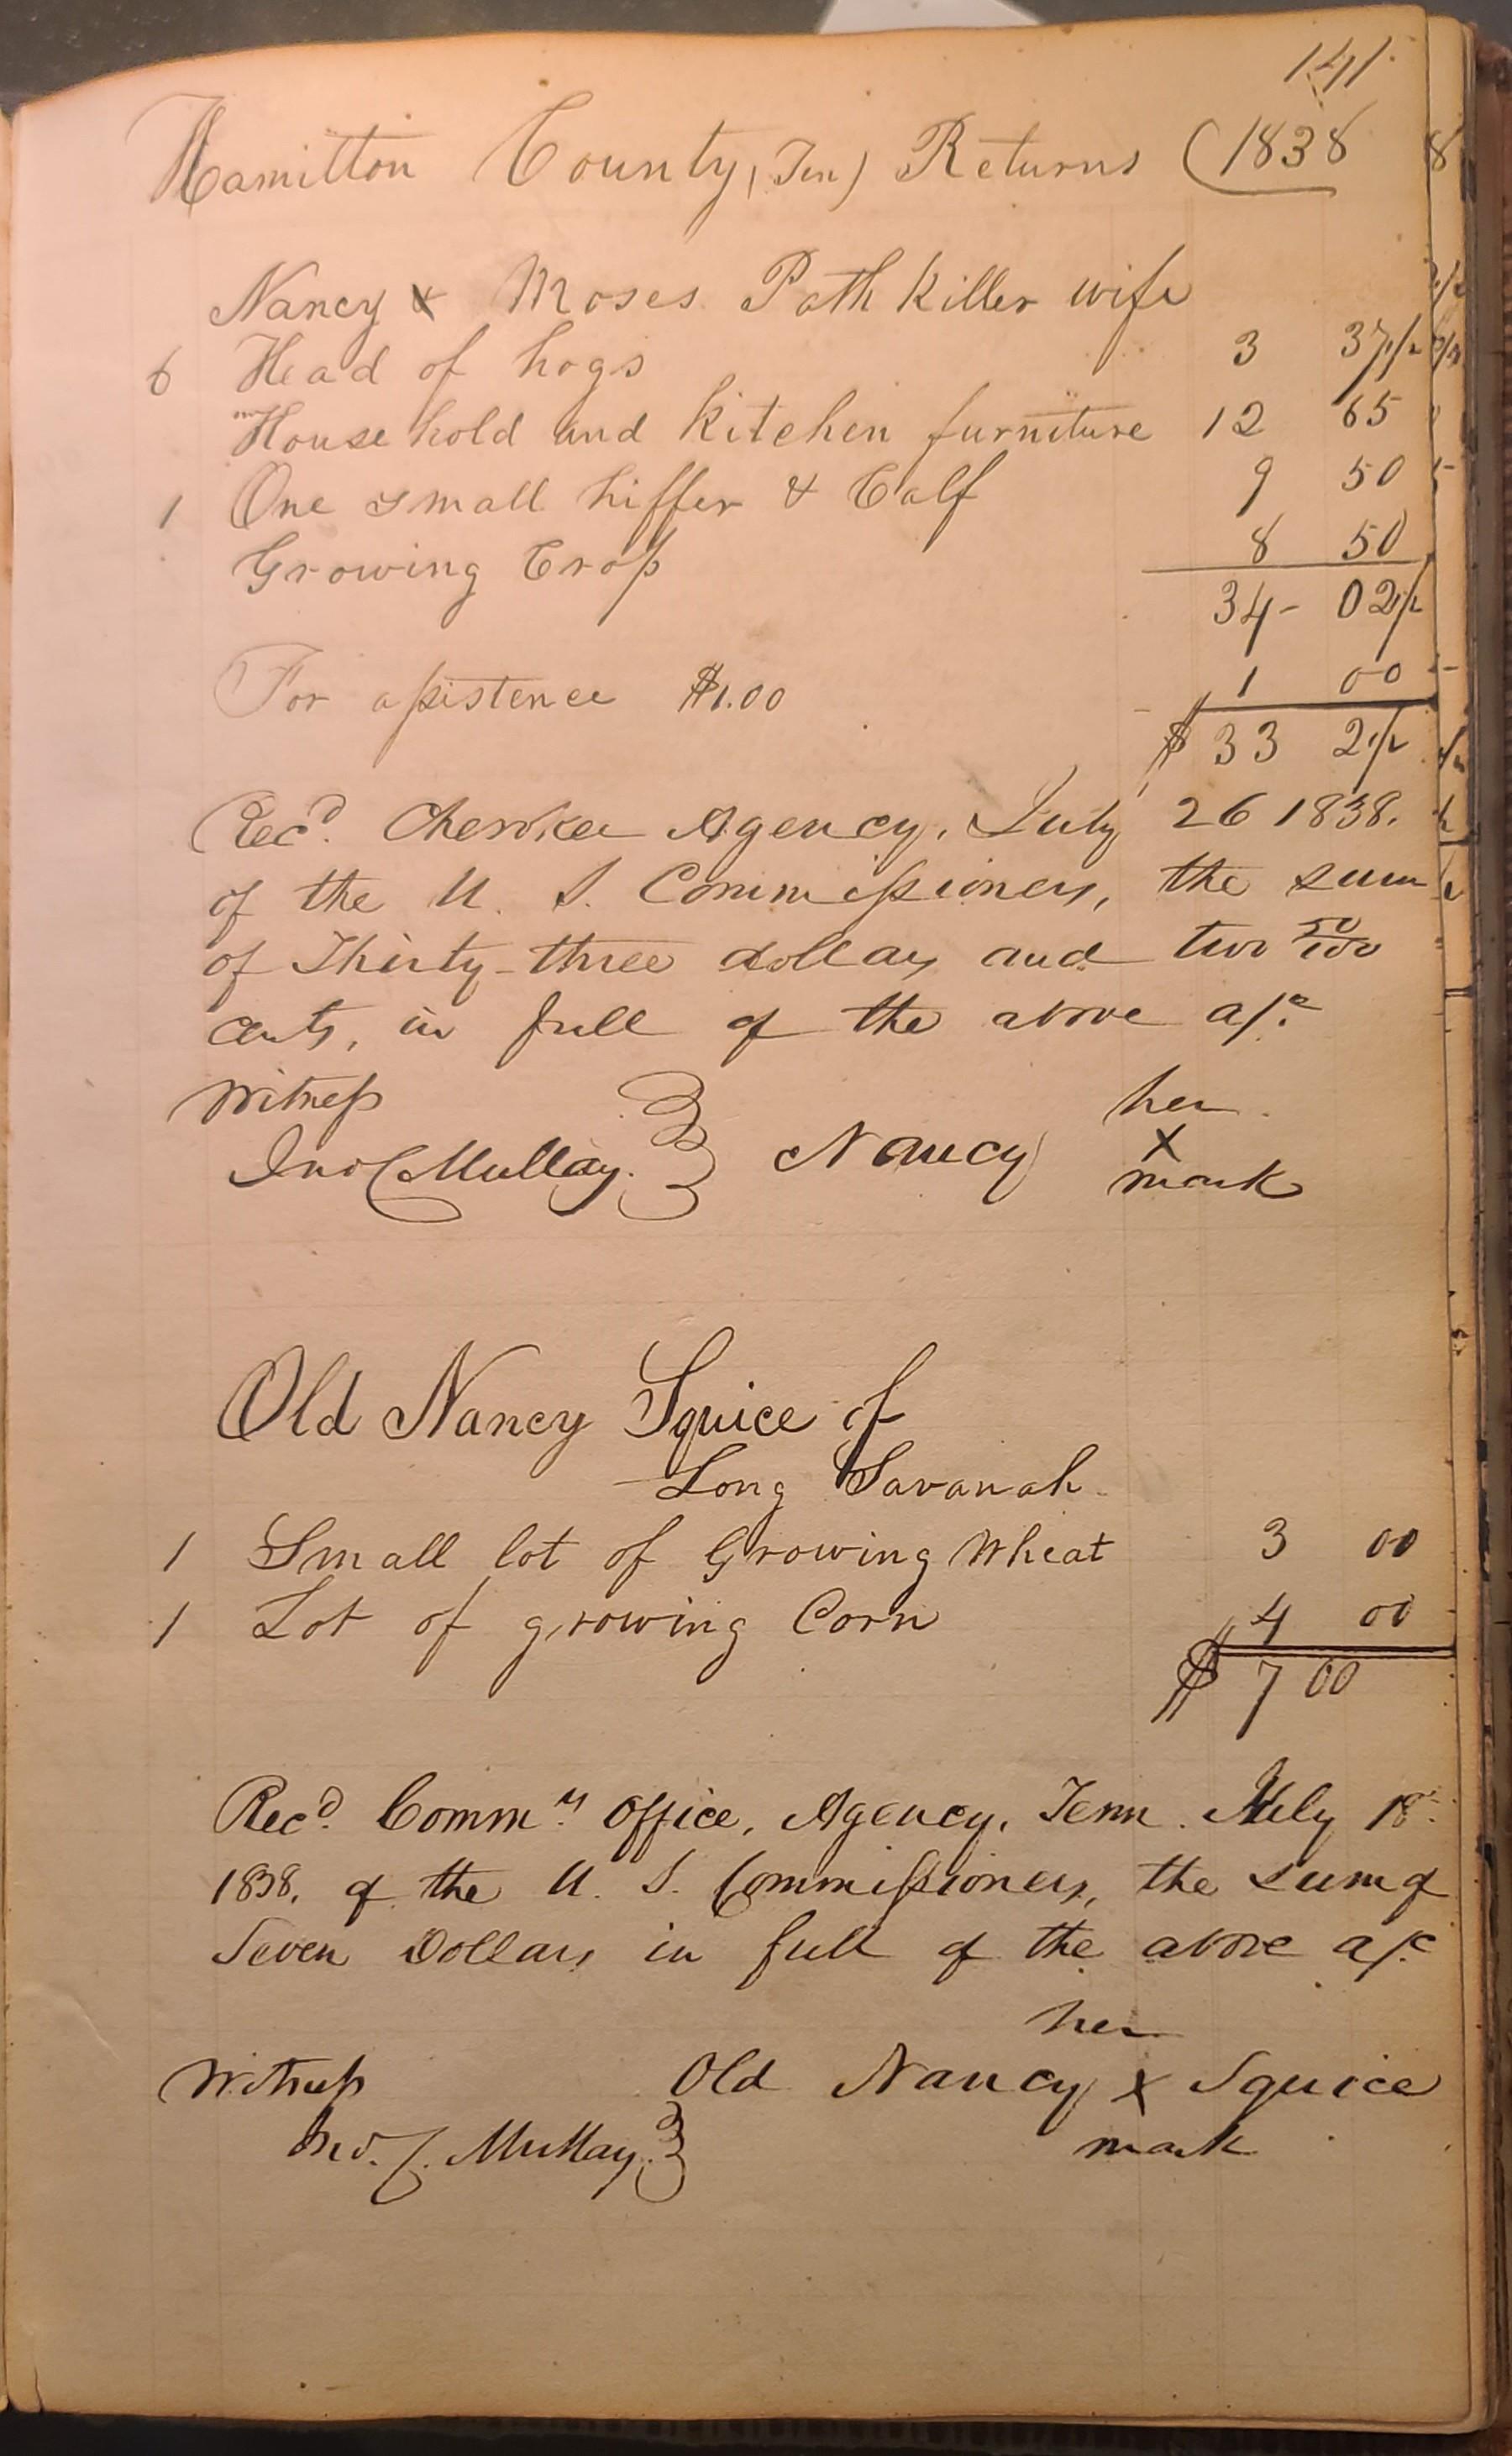 141
Hamilton County, (Ten) Returns (1838
Nancy & Moses Path Killer wife
6 Head of hogs 3 37 1/2
Household and Kitchen furniture 12 65
1 One small hiffer & Calf 9 50
Growing Crop 8 50
34 - 02 1/2
For assistence $1.00 1 00
$ 33 2 1/2
Recd. Cherokee Agency, July 26 1838.
of the U. S. Commissioners, the sum
of Thirty-three dollars and two 50/100
cents, in full of the above a/c
Witness her
Jno C Mullay. Nancy X
mark
Old Nancy Squice of
Long Savanah
1 Small lot of Growing Wheat 3 00
1 Lot of growing Corn 4 00
$ 7 00
Recd. Commrs Office, Agency, Tenn. July
1838, of the U. S. Commissioners, the sum of
Seven Dollars in full of the above a/c
her
Witness Old Nancy X Squice
Jno. C. Mullay. mark